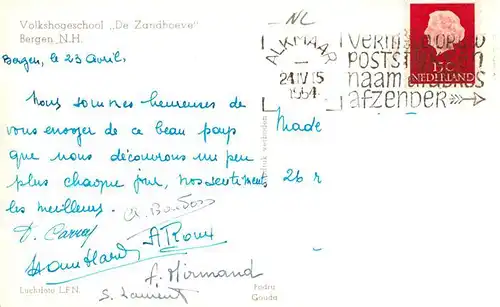 Volkshogeschool „De Zandhoeve"
Bergen N.H.
NL
ALKMAAR
24 IV 15
1954
VERMELD OP UW
POSTSTUKKEN
naam en adres
afzender
NEDERLAND
Bergen, le 23 Avril.
Nous sommes heureuses de
vous envoyer de ce beau pays
que nous découvrons un peu
plus chaque jour, nos sentiments
les meilleurs.
Made
26 r
A. Roux
A. Mirmand
S. Laurent
Luckfoto L.F.N.
Gouda